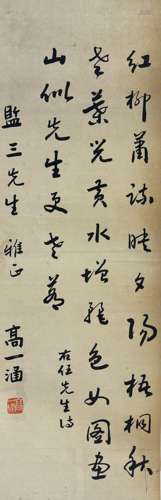 红柳萧疏映夕阳梧桐秋
老叶先黄水增张色如图画
山似先生更老苍
右任先生诗
监三先生 雅正
高一涵